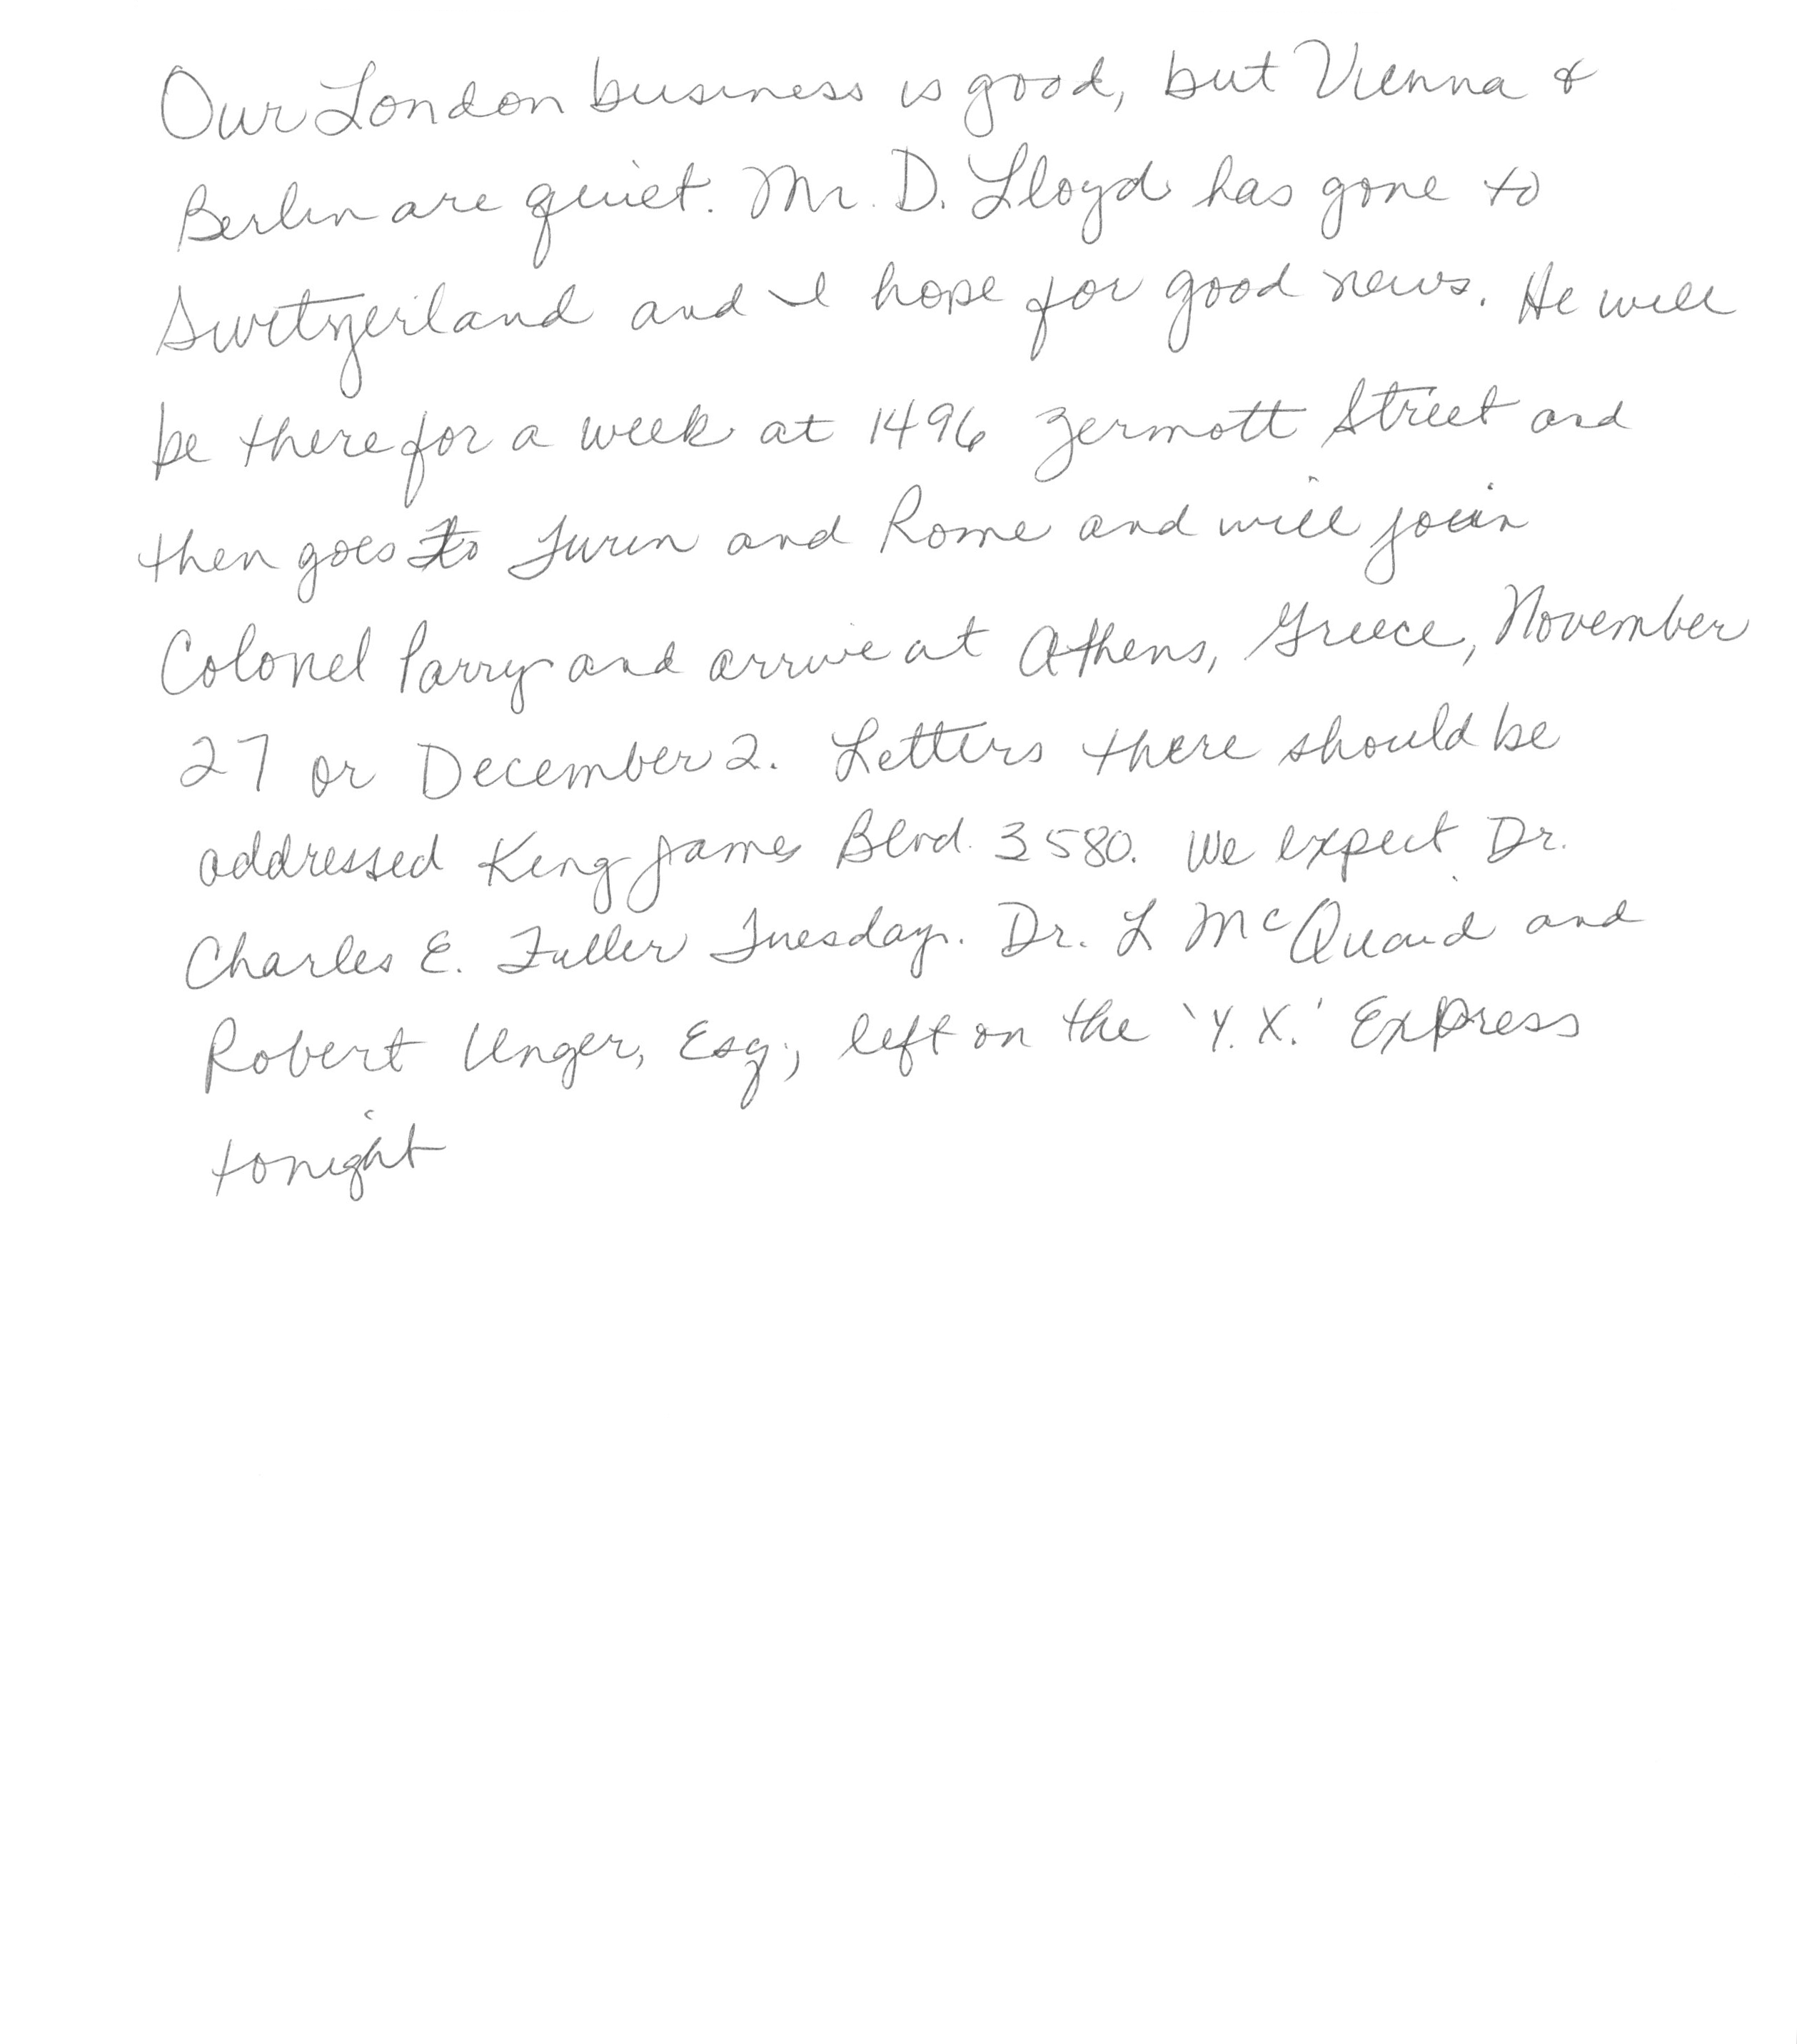 Our London business is good, but Vienna &
Berlin are quiet. Mr. D. Lloyd has gone to
Switzerland and I hope for good news. He will
be there for a week at 1496 Zermott Street and
then goes to Turin and Rome and will join
Colonel Parry and arrive at Athens, Greece, November
27 or December 2. Letters there should be
addressed King James Blvd. 3580. We expect Dr.
Charles E. Fuller Tuesday. Dr. L McQuaid and
Robert Unger, Esq., left on the 'Y.X.' Express
tonight